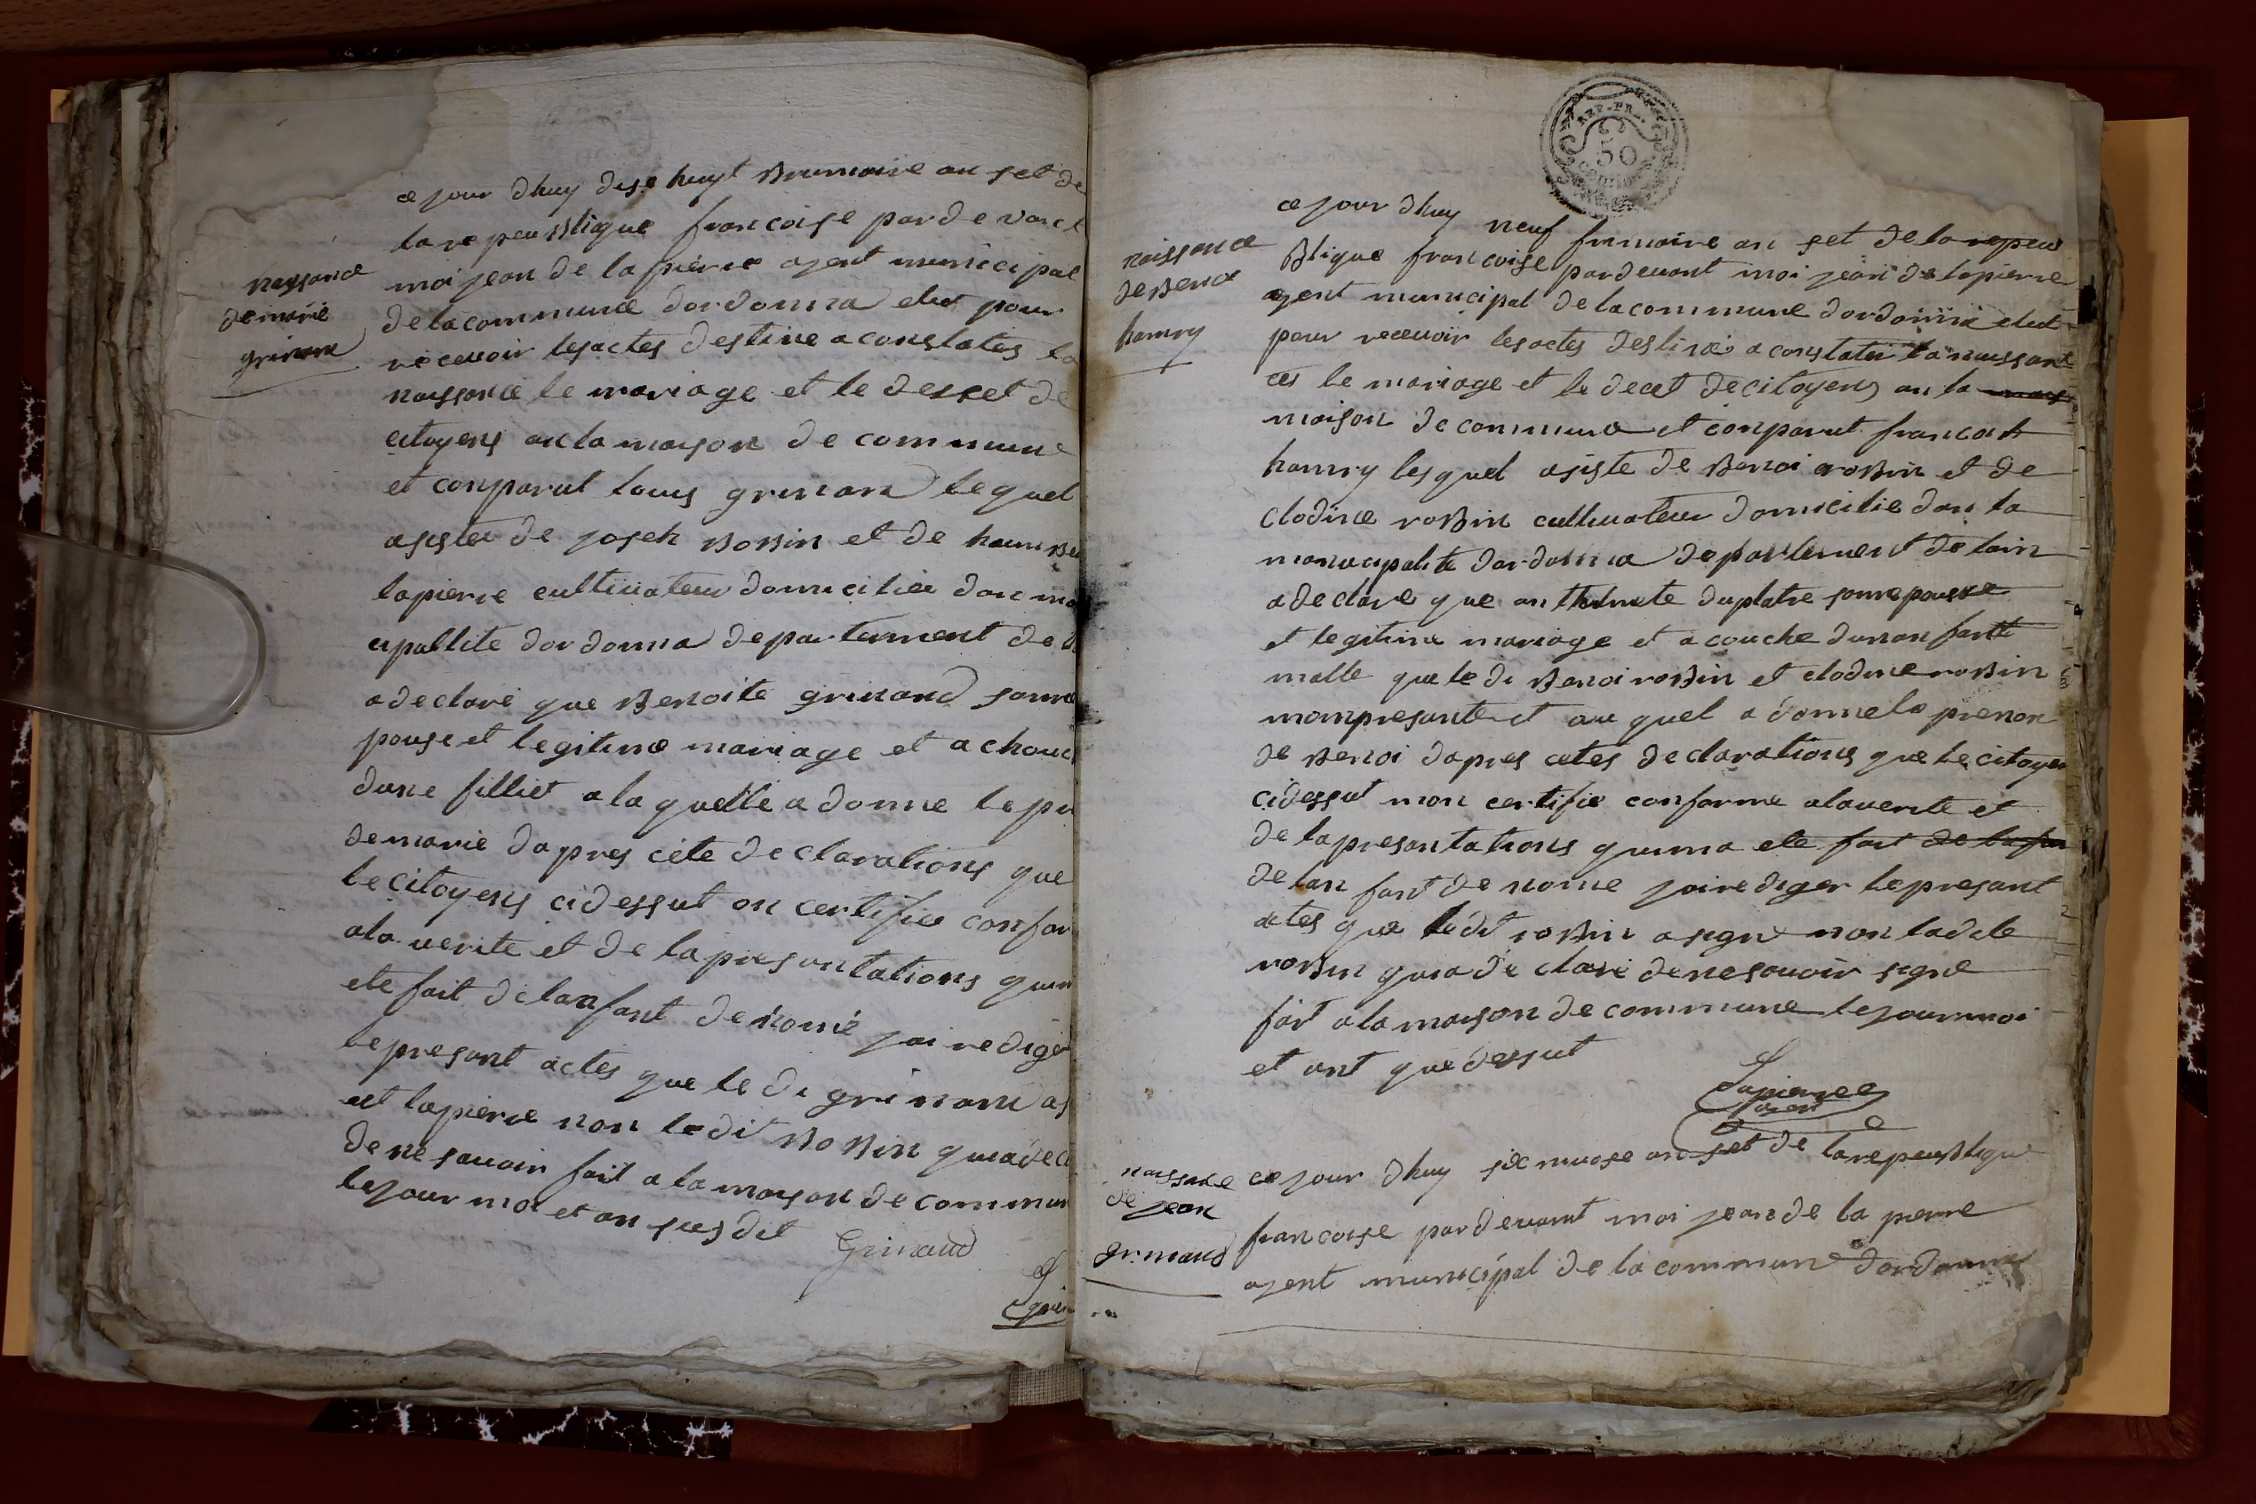 ce jour dhuy dise huyt Brumaire an set de
la repeublique francoise par de vant
moi jean de la pierre agent municipal
de la commune dordonna elut pour
recevoir les actes destine a constates la
naissance le mariage et le decet de
citoyens an la maison de commune
et conparut louis grinan le quel
asistee de joseh Bobin et de
lapierre cultivateur domiciliee dan
cipallite dordonna departement de
a declare que Benoite grinand sonne
pouse et legitime mariage et a
dune filliet a la quelle a donne le
de marie dapres cete declarations que
le citoyens cidessut on certifie
a la verite et de la presantations
ete fait de lanfant denomé jai rediger
le presant actes que le di grinand
et lapierre non le dit Bobin
de ne savoir fait a la maison de commun
le jour moi et an susdit
Grinand
nayssance
de marie
grinand
REP. FR.
50
ce jour dhuy neuf frimaire an set de la repeu
blique francoise pardevant moi jean de lapierre
agent municipal de la commune dordonna elut
pour recevoir les actes destine a constater la naissan
ces le mariage et le decet de citoyens an la
maison de commune et conparut
hamry lesquel asiste de Benoi robin et de
clodine robin cultivateur domicilie dan la
municipalite dordonna departement de lain
a declare que anthelmete duplatre sonnepouse
et legitime mariage et a couche dunanfantt
malle que le di Benoi robin et clodine robin
mompresante et au quel a donne le prenon
de Benoi dapres cetes declarations que le citoyen
cidessut mon certifie conforme alaverite et
de la presantations quima ete fait
de lan fant de nome jairediger lepresant
actes que ledit robin a signe non ladite
robin quia declare denesavoir signe
fait a la maison de commune lejourmoi
et ant que dessut
Lapierre
agent
naissance
de Benoi
hamry
ce jour dhuy six nivose an set de la repeublique
francoise pardevant moi jean de la pierre
agent municipal de la commune dordonna
naissance
de jean
grinand